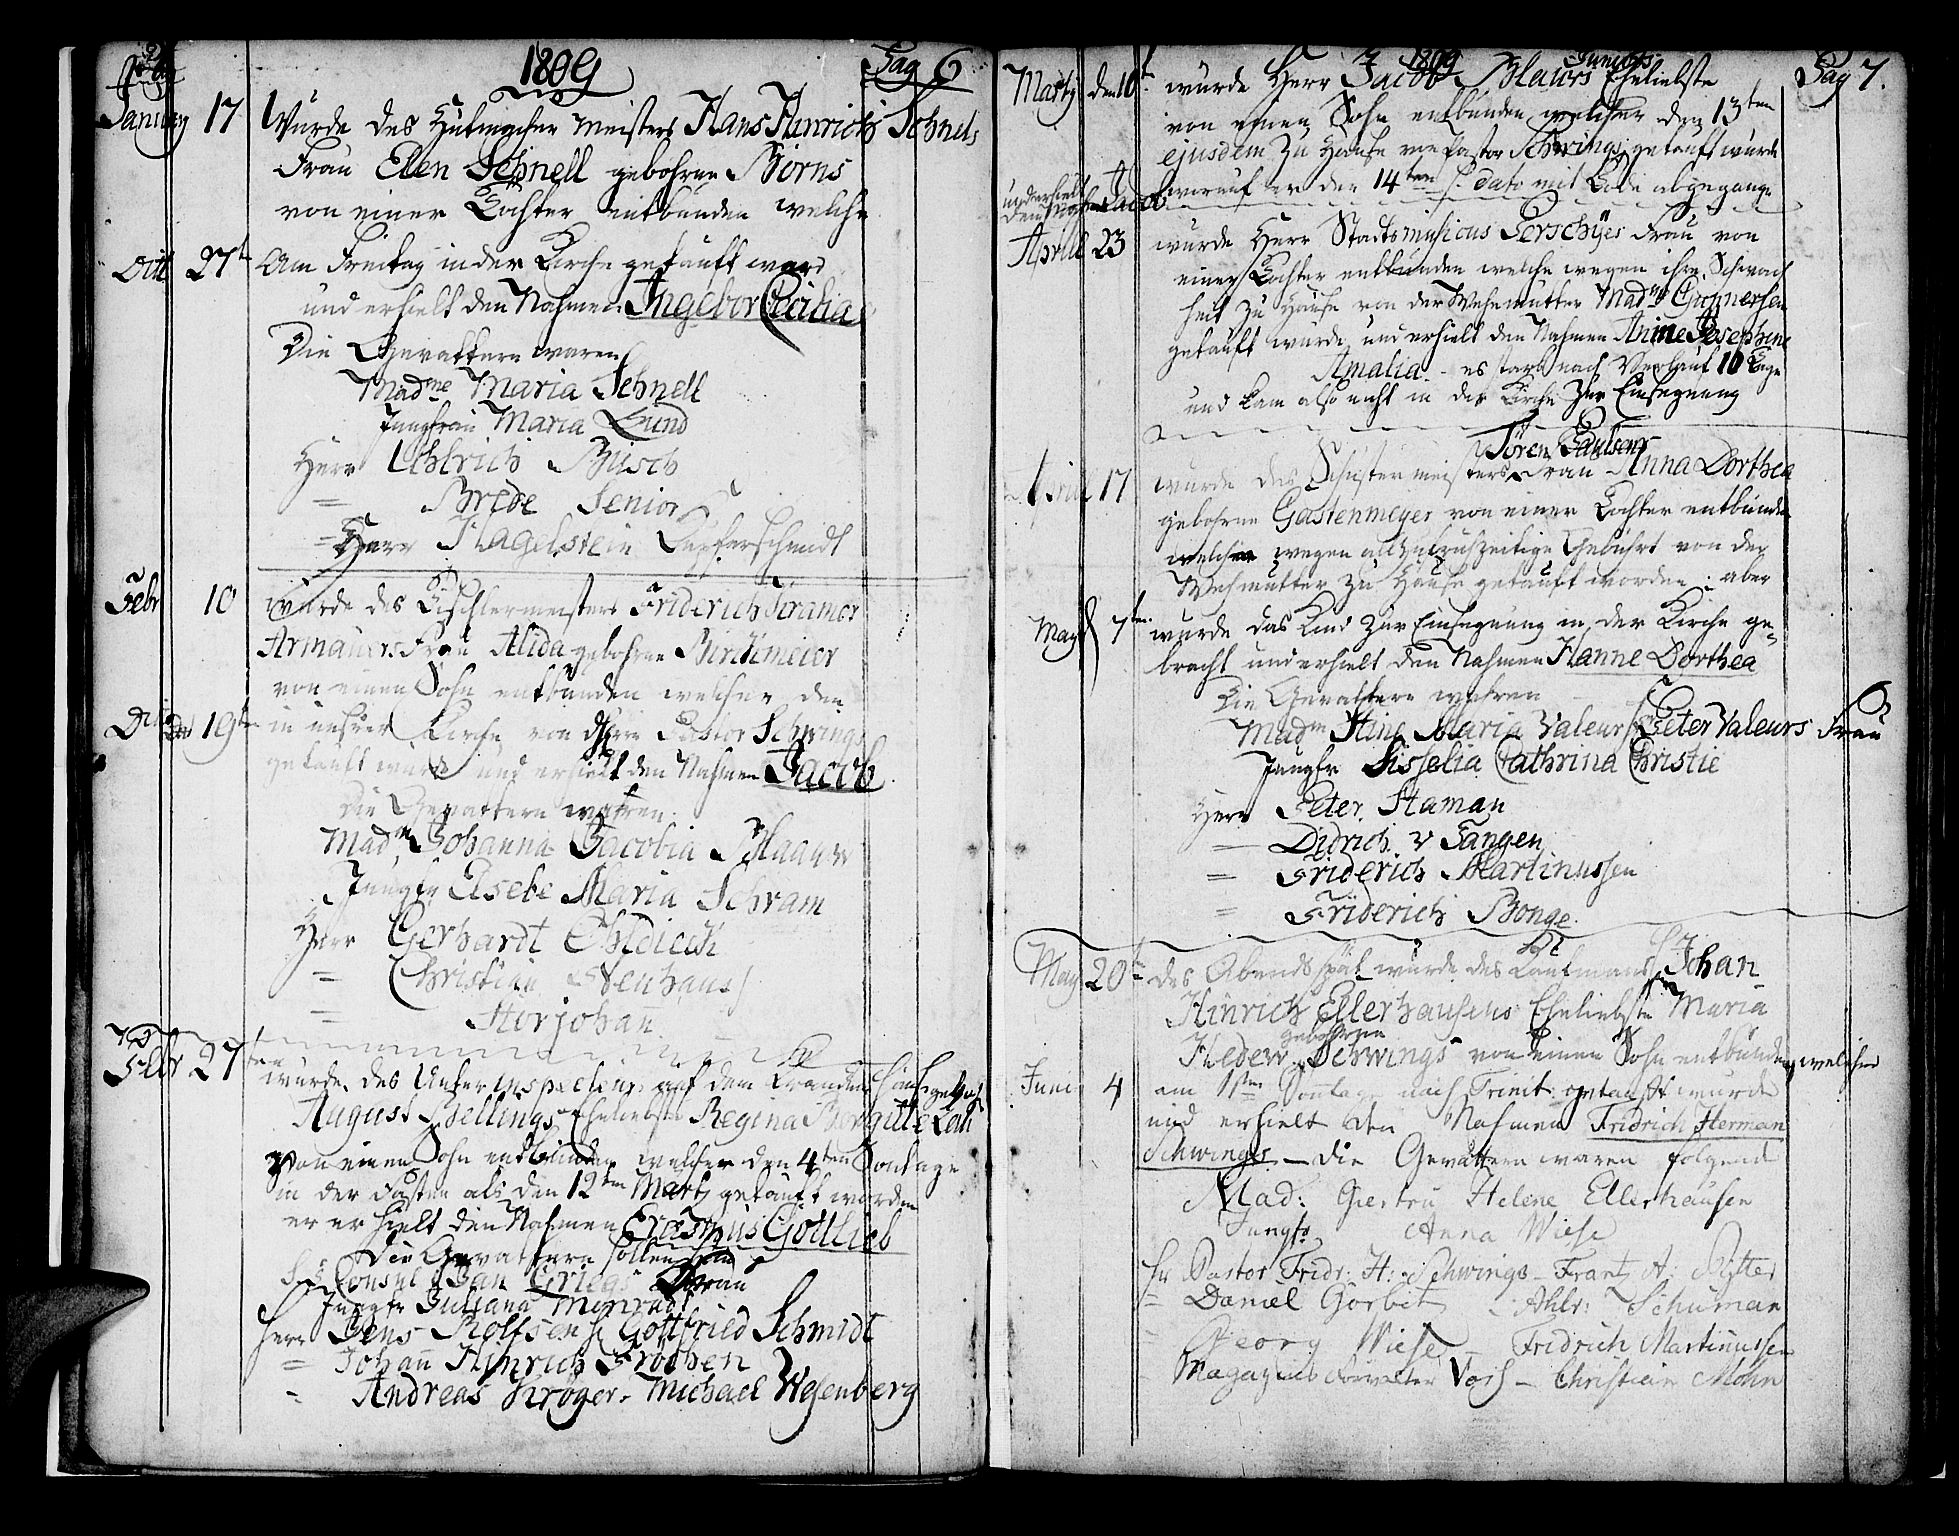 1809
Pag 6
January 17 Wurde des Hutmacher meisters Hans Hinrich Schnels
Frau Elen Schnell gebohrne Börns
von einer Tochter entbunden welche
Ditt 27t Am Freitag in der Kirche getauft ward
und erhielt den Nahmen Ingebor Cecilia
Die Gevattern waren
Madme Maria Schnell
Jungfrau Maria Lund
Herr Uhlrich Busch
= Brede Senior
= Herr Hagelstein Kupferschmidt
Febr 10 wurde des Tischlermeisters Friderich
Armauers Frau Alida gebohrne Birckmeier
von einen Sohn entbunden welcher den
Dito 19ten in unsrer Kirche von Herr Pastor Schwings
getauft wurde und erhielt den Nahmen Jacob
Die Gevattern wahren
Madm Johanna Jacobia Blaauw
Jungfr Elsebe Maria Schram
Herr Gerhardt Ohldieck
= Christian Nenhaus
= Storjohan
Febr 27ten
wurde des Unter inspecteur auf dem
August Stellings Eheliebste Regina
von einen Sohn entbunden welcher den 4ten Sontage
in der Fasten als den 12ten Martz getauft worden
er erhielt den Nahmen Erasmus Gottlieb
Die Gevattern sollen sein
Consul Jan Griegs Frau
Jungfr Juliana Monradt
Herr Jens Rolfsen H Gottfried Schmidt
= Johan Hinrich Fröchen
= Andreas Kröger - Michael Wesenberg
1809
Pag 7.
Marty den 10t wurde Herr Jacob Blaurs Juniors Eheliebste
von einen Sohn entbunden welcher den 13ten
ejusdem zu Hause von Pastor Schwings getauft wurde
und erhielt den Nahmen Jacob
worauf er den 14ten dato mit Tode abgegange
Aprill 23 wurde Herr Stadtsmusicus Perschÿes Frau von
einer Tochter entbunden welche wegen ihre Schwach
heit zu Hause von der Wehemutter Madme
getauft wurde und erhielt den Nahmen Anne Josephine
Amalia - es starb nach Verlauf 10 Tage
und kam also nicht in der Kirche zur Einsegnung
Aprill 17 wurde des Schustermeisters Sören Paulsens Frau Anna Dorthea
gebohrne Gastenmeyer von einer Tochter entbunden
welche wegen allzufrühzeitige Gebuhrt von der
Wehmutter zu Hause getauft worden: aber
May 7ten wurde das Kind zur Einsegnung in der Kirche ge-
bracht und erhielt den Nahmen Hanne Dorthea
Die Gevattern wahren
Madm Stine Maria Valeur Peter Valeurs Frau
Jungfr Sisselia Cathrina Christie
Herr Peter Staman
— Didrich v Tangen
= Friderich Martinussen
= Friderich Bonge.
May 20t des Abends spät wurde des Kaufmans Johan
Hinrich Ellerhausens Eheliebste Maria
Hedew gebohrne Schwings von einen Sohn entbunden, welcher
Juni 4 am 1sten Sontage nach Trinit: getauft wurde
und erhielt den Nahmen Fridrich Herman
Schwings — die Gevattern waren folgende
Mad: Giertru Helene Ellerhausen
Jungfr Anna Wiese
Hr Pastor Fridr: H: Schwings - Frantz A: Ritter
= Daniel Görbit - Ahlr: Schuman
- Georg Wiese - Fridrich Martinussen
Magazins Vorwalter Voss - Christian Mohn